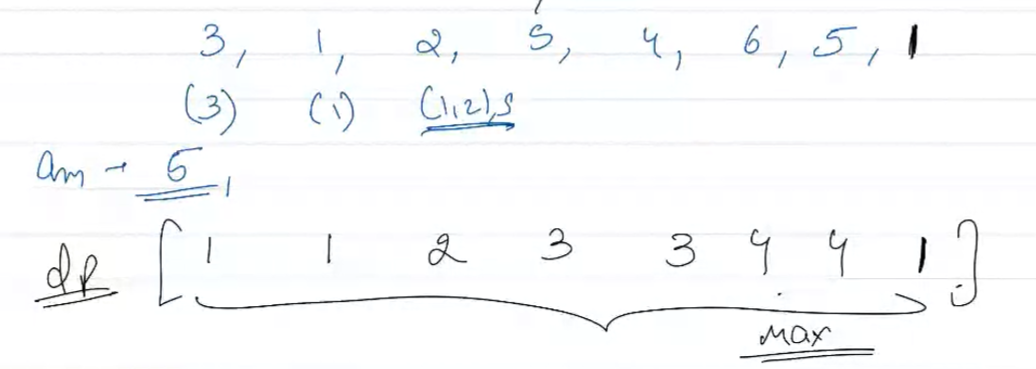 3, 1, 2, 5, 4, 6, 5, 1
(3) (1) (1,2),5
am → 5,
dp [1 1 2 3 3 4 4 1]
Max